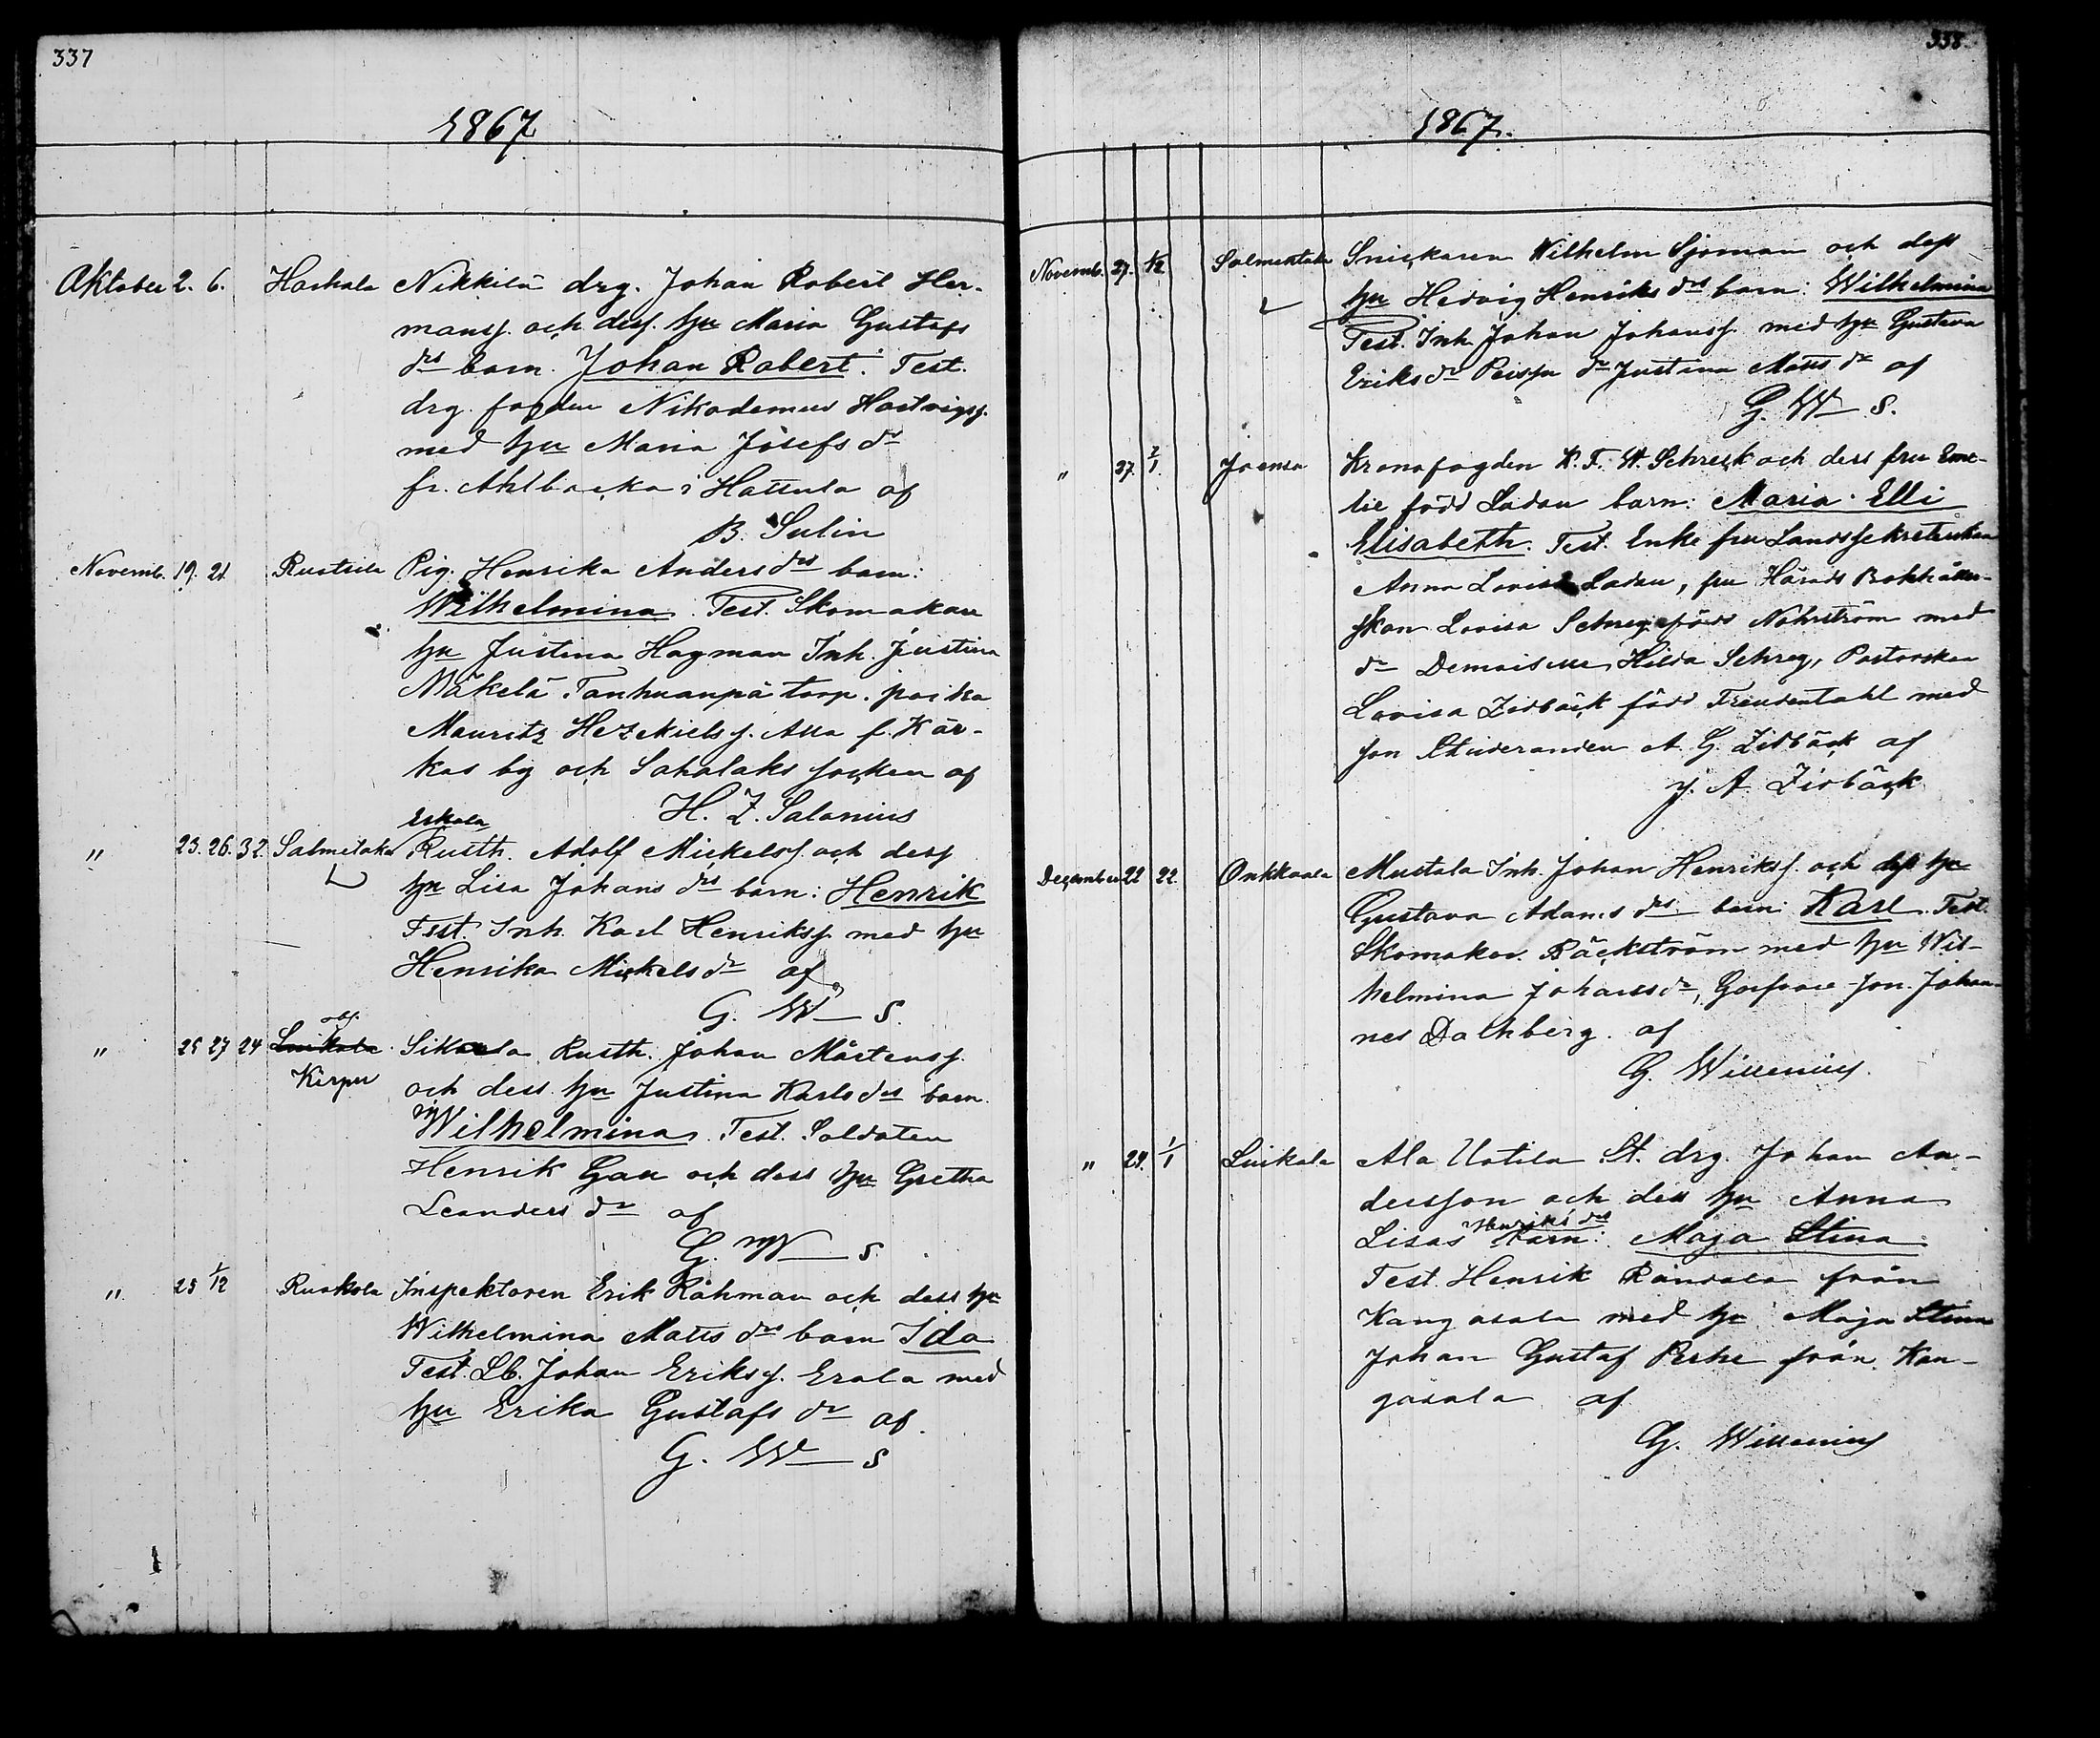 337
1867
Oktober 2. 6. Haskala Nikkilä drg. Johan Robert Her-
mansf. och dess hu Maria Gustafs
drs barn. Johan Robert. Test.
drg. fogden Nikodemus Hartvigsf.
med hu Maria Josefs dr
fr. Ahlbacka i Hattula af
B. Sulin
Novemb. 19. 21. Ruotsila Pig. Henrika Anders drs barn:
Wilhelmina. Test. Skomakare
hu Justina Hagman Inh. Justina
Mäkelä Tanhuanpä torp. poika
Mauritz Hezekielsf. Alla f. Kär-
kas by och Sahalaks socken af
H. Z. Salonius
Eskola
" 23. 26. 32. Salmetaka Rusth. Adolf Mickelsf. och dess
hu Lisa Johans drs barn: Henrik
Test. Inh. Karl Henriksf. med hu
Henrika Mickels dr af
G. W S.
" 25 27 24 Luikala Sikala Rusth. Johan Mårtensf.
Kirpu
och dess hu Justina Karls drs barn.
Wilhelmina. Test. Soldaten
Henrik Gau och dess hu Gretha
Leanders dr af
G. W S.
" 25 1/12 Ruokola Inspektoren Erik Råhman och dess hu
Wilhelmina Matts drs barn Ida
Test. Lb. Johan Eriksf. Erola med
hu Erika Gustafs dr af
G. W S
338.
1867.
Novemb. 27. 1/12 Salmentaka Snickaren Wilhelm Sjöman och dess
hu Hedvig Henriks drs barn: Wilhelmina
Test. Inh. Johan Johansf. med hu Gustava
Eriks dr dr Justina Matts dr af
G. W S.
" 27. 2/1. Joensu Kronofogden K. F. W. Schreck och dess fru Eme-
lie född Ladau barn: Maria Elli
Elisabeth. Test. Enke fru Landssekreterskan
Anna Lovisa Ladau, fru Härads Bokhåller-
skan Lovisa Schreg född Nohrström med
dr Demoiselle Hilda Schreg, Pastorskan
Lovisa Zidbäck född Freudentahl med
son Studeranden A. G. Zidbäck af
J. A. Zidbäck
December 22 22. Onkkaala Mustala Inh. Johan Henriksf. och dess hu
Gustava Adams drs barn: Karl. Test.
Skomakar. Bäckström med hu Wil-
helmina Johans dr, son. Johan-
nes Dalhberg. af
G. Willenius.
" 24. 1/1 Luikala Ala Uotila St. drg. Johan An-
dersson och dess hu Anna
Henriks drs
Lisas barn: Maja Stina
Test. Henrik Randala från
Kangasala med hu Maja Stina
Johan Gustaf Perhe från Kan-
gasala af
G. Willenius